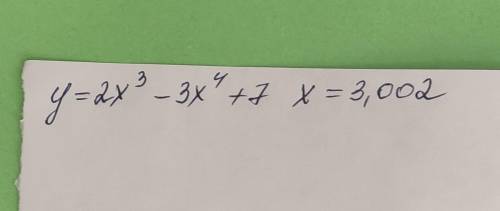 y = 2x³ - 3x⁴ + 7 x = 3,002